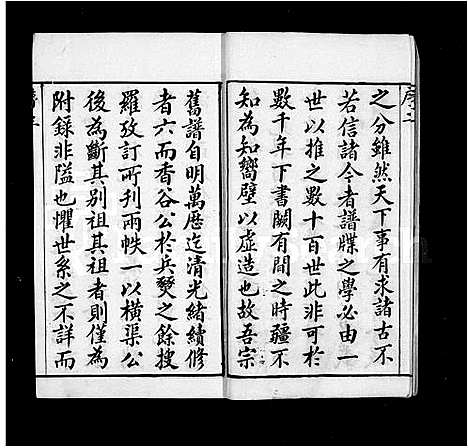 之分雖然天下事有求諸古不
若信諸今者譜牒之學必由一
世以推之數十百世此非可於
數千年下書闕有間之時疆不
知為知嚮壁以虛造也故吾宗
舊譜自明萬厯迄清光緒續修
者六而香谷公於兵燹之餘搜
羅攷訂所刊兩帙一以橫渠公
後為斷其別祖其祖者則僅為
附錄非隘也懼世系之不詳而